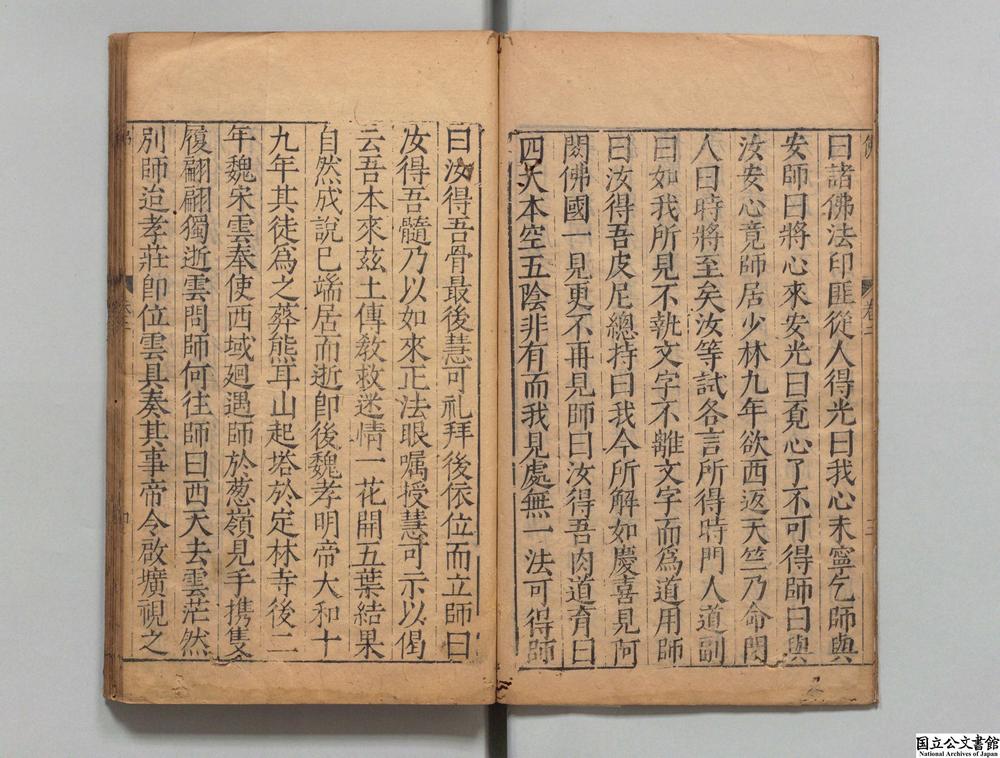 曰諸佛法印匪從人得光曰我心未寧乞師與
安師曰將心來安光曰覓心了不可得師曰與
汝安心竟師居少林九年欲西返天竺乃命門
人曰時將至矣汝等試各言所得時門人道副
曰如我所見不執文字不離文字而爲道用師
曰汝得吾皮尼總持曰我今所解如慶喜見阿
閦佛國一見更不再見師曰汝得吾肉道育曰
四大本空五陰非有而我見處無一法可得師
曰汝得吾骨最後慧可礼拜後依位而立師曰
汝得吾髓乃以如來正法眼嘱授慧可示以偈
云吾本來兹土傳教救迷情一花開五葉結果
自然成說已端居而逝卽後魏孝明帝大和十
九年其徒爲之葬熊耳山起塔於定林寺後二
年魏宋雲奉使西域廻遇師於葱嶺見手携隻
履翩翩獨逝雲問師何往師曰西天去雲茫然
別師迨孝莊卽位雲具奏其事帝令啟壙視之
卷二
国立公文書館
National Archives of Japan